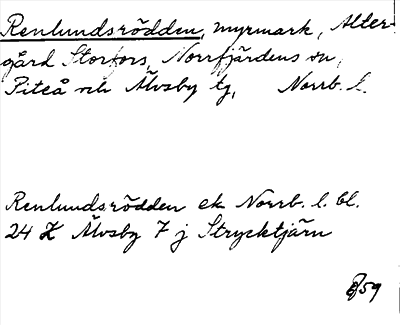 Renlundsrödden, myrmark, Alter-
gård Storfors, Norrfjärdens sn,
Piteå och Älvsby tg, Norrb. l.
Renlundsrödden ek Norrb. l. bl.
24 K Älvsby 7 j Strycktjärn
59